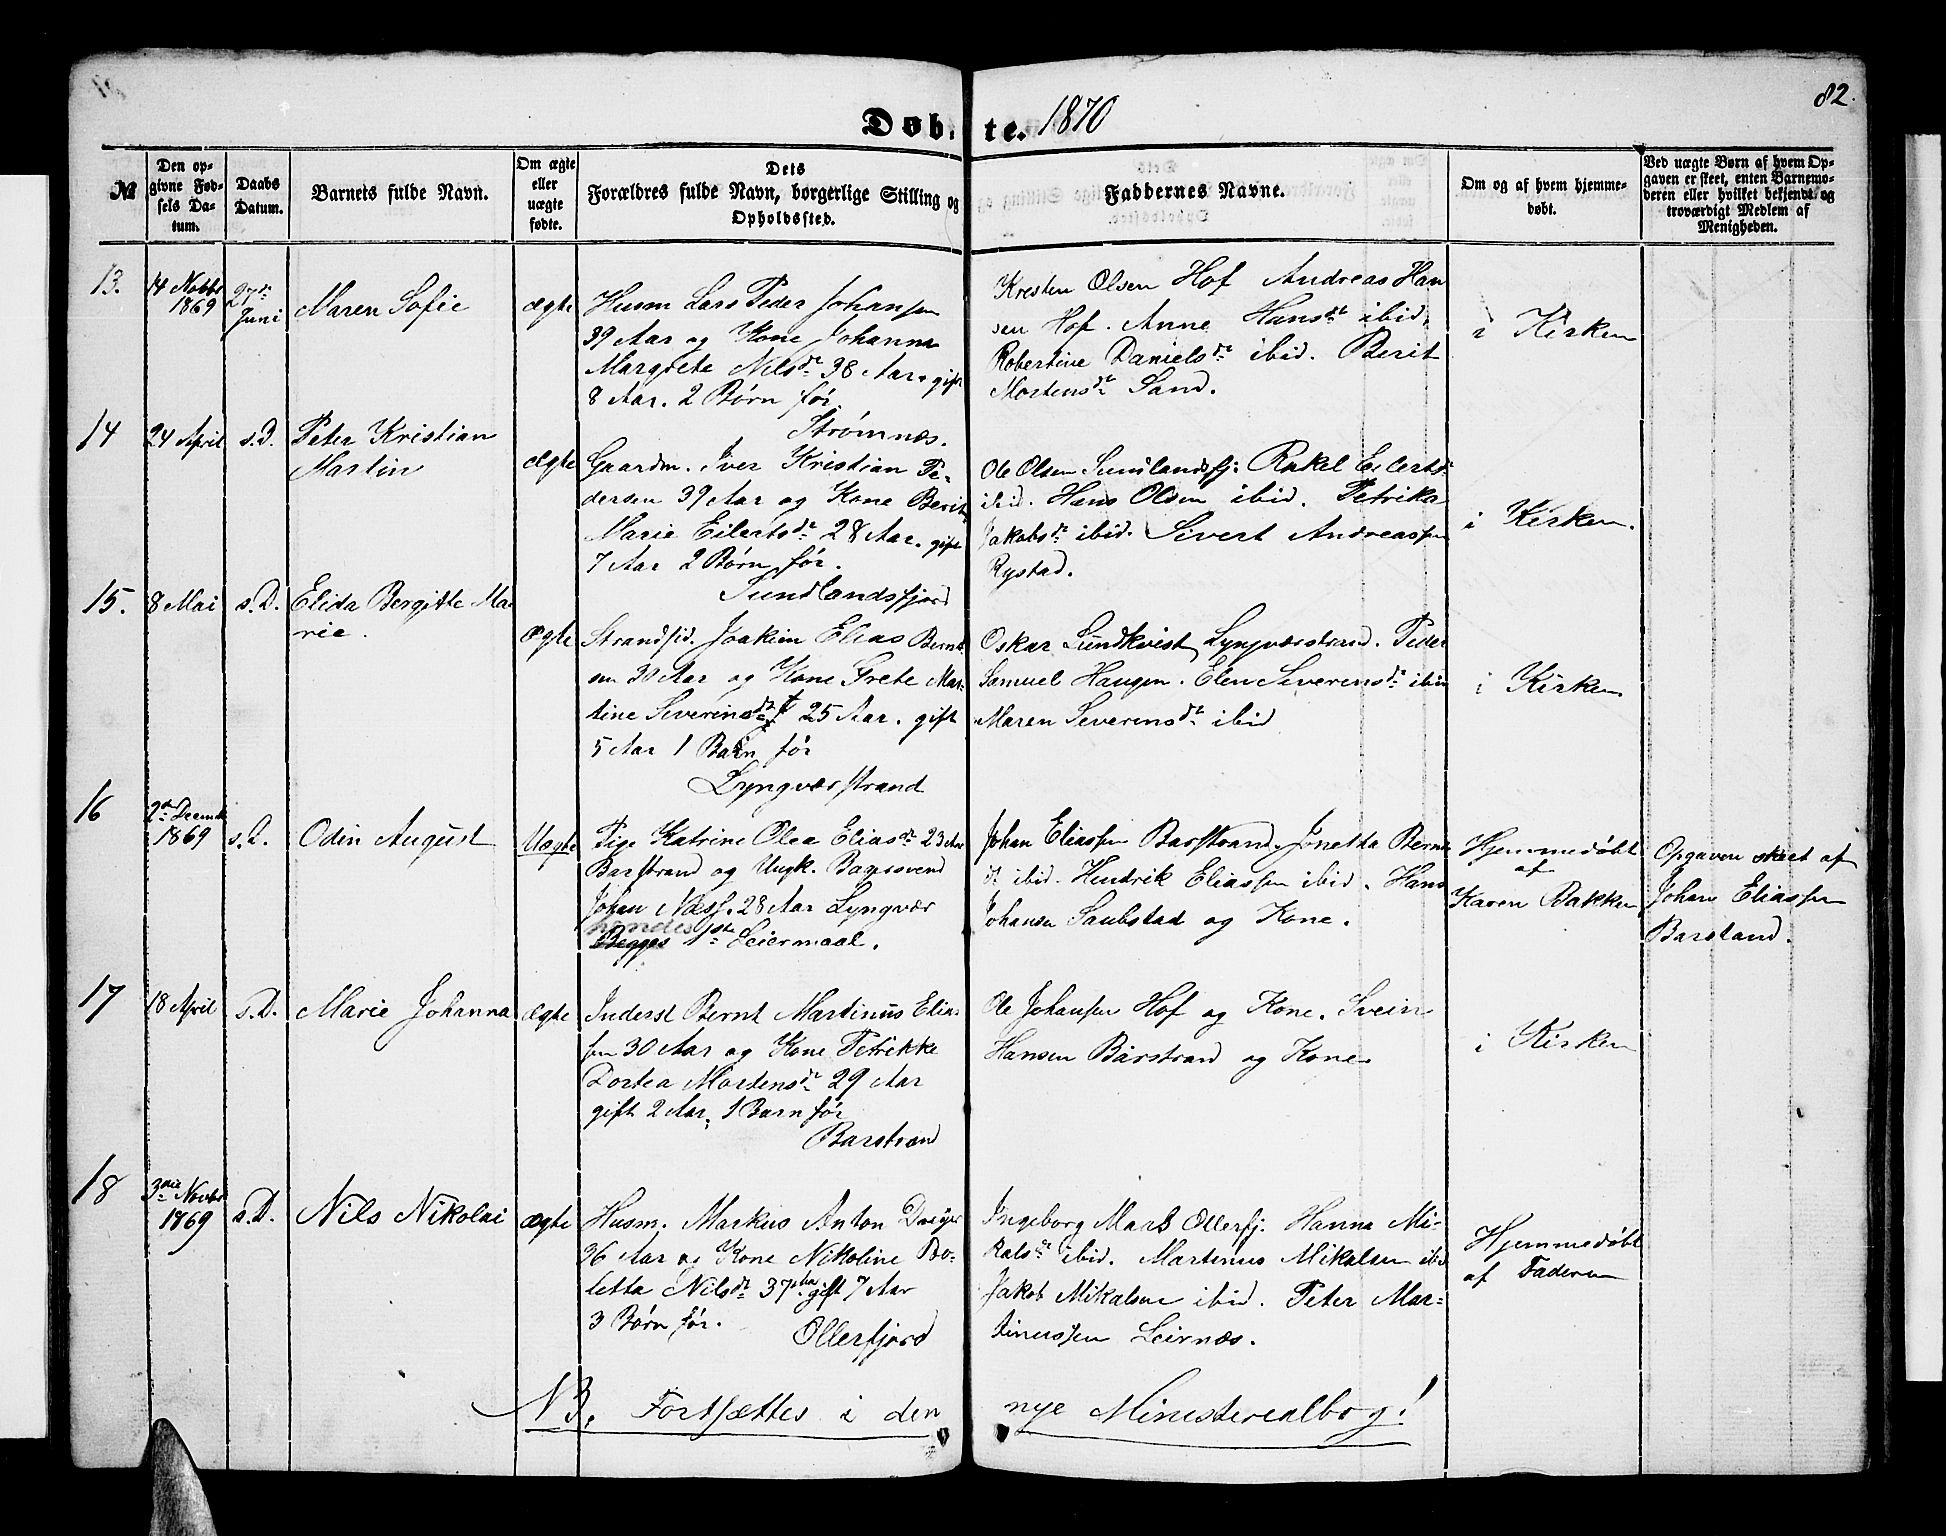 82.
Døbte. 1870
№
Den opgivne Fødsels Datum.
Daabs Datum.
Barnets fulde Navn.
Om ægte eller uægte fødte.
Dets Forældres fulde Navn, borgerlige Stilling og Opholdssted.
Faddernes Navne.
Om og af hvem hjemmedøbt.
Ved uægte Børn af hvem Opgaven er skeet, enten Barnemoderen eller hvilket bekjendt og troværdigt Medlem af Menigheden.
13.
14 Novbr
1869
27de
Juni
Maren Sofie
ægte
Husm Lars Peder Johansen
39 Aar og Kone Johanna
Margrete Nilsdr 38 Aar. gift
8 Aar. 2 Børn før.
Strømnes.
Kresten Olsen Hof Andreas Han
sen Hof. Anne Hansdr ibid.
Robertine Danielsdr ibid. Berit
Mortensdr Sand.
i Kirken
14
24 April
s.D.
Peter Kristian
Martin
ægte
Gaardm. Iver Kristian Pe-
dersen 39 Aar og Kone Berit
Marie Eilertsdr 28 Aar. gift
7 Aar 2 Børn før.
Sundlandsfjord
Ole Olsen Sundlandsfj. Rakel Eilertsdr
ibid. Hans Olsen ibid. Petrika
Jakobsdr ibid. Sivert Andreassen
Rystad.
i Kirken.
15.
8 Mai
s.D.
Elida Bergitte Ma
rie.
ægte
Strandsid. Joakim Elias Bernt
sen 30 Aar og Kone Grete Mar-
tine Severinsdr 25 Aar. gift
5 Aar 1 Barn før
Lyngværstrand
Oskar Sundkvist Lyngværstrand. Peder
Samuel Haugen. Elen Severensdr ibid
Maren Severensdr ibid
i Kirken
16
2den Decemb
1869
s.D.
Odin August
Uægte
Pige Katrine Olea Eliasdr 23 Aar
Barstrand og Ungk. Bagersvend
Johan Næss. 28 Aar Lyngvær
hendes
Begges 1ste Leiermaal.
Johan Eliassen Barstrand. Jonetta Bernts
dr ibid. Hendrik Eliassen ibid. Hans
Johansen Saubstad og Kone.
Hjemmedøbt
af
Karen Bakken
Opgaven skeet af
Johan Eliassen
Barstand.
17
18 April
s.D.
Marie Johanna
ægte
Inderst Bernt Martinus Elias
sen 30 Aar og Kone Petrikke
Dortea Mortensdr 29 Aar
gift 2 Aar. 1 Barn før
Barstrand
Ole Johansen Hof og Kone. Svein
Hansen Barstrand og Kone
i Kirken
18
3die Novbr
1869
s.D.
Nils Nikolai
ægte
Husm. Markus Anton Dreyer
36 Aar og Kone Nikoline Bo-
letta Nilsdr 37 gift 7 Aar
3 Børn før.
Ollerfjord
Ingeborg Mars Ollerfj. Hanna Mi-
kalsdr ibid. Martinus Mikalsen ibid
Jakob Mikalsen ibid. Peter Mar-
tinussen Leirnæs.
Hjemmedøbt
af Faderen
NB. Fortsættes i den nye Ministerealbog!